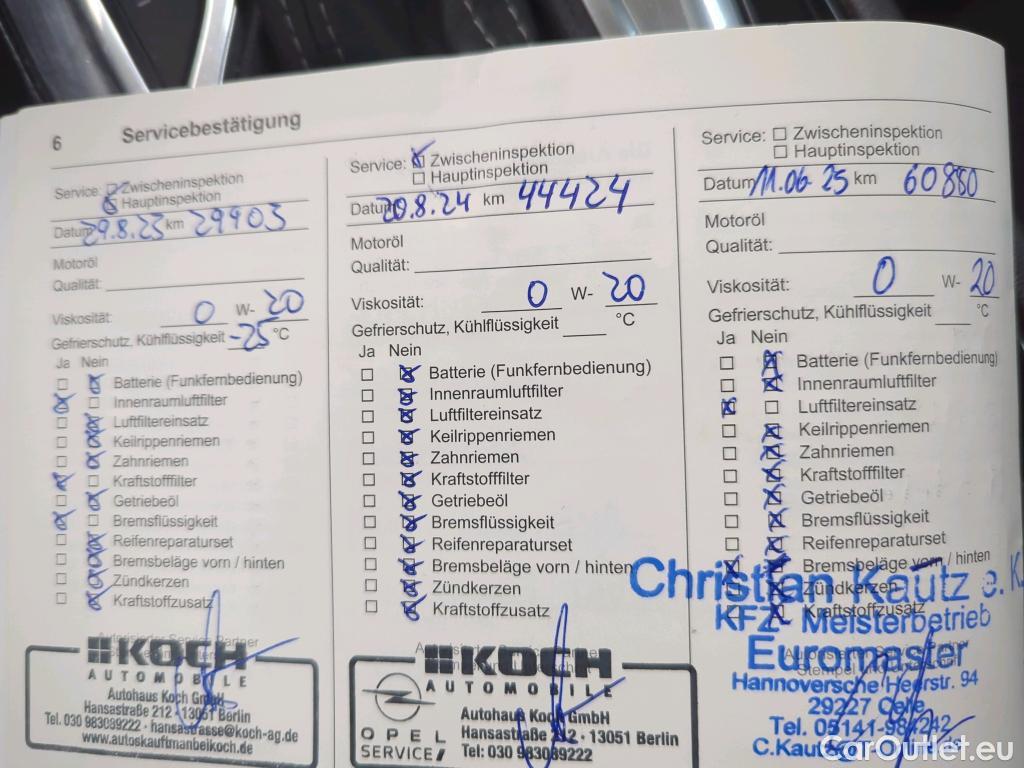 6 Servicebestätigung
Service: Zwischeninspektion
Hauptinspektion
Datum 29.8.23 km 29903
Motoröl
Qualität:
Viskosität: 0 W- 20
Gefrierschutz, Kühlflüssigkeit -25 °C
Ja Nein
Batterie (Funkfernbedienung)
Innenraumluftfilter
Luftfiltereinsatz
Keilrippenriemen
Zahnriemen
Kraftstofffilter
Getriebeöl
Bremsflüssigkeit
Reifenreparaturset
Bremsbeläge vorn / hinten
Zündkerzen
Kraftstoffzusatz
KOCH
AUTOMOBILE
Autohaus Koch GmbH
Hansastraße 212 · 13051 Berlin
Tel. 030 983089222 · hansastrasse@koch-ag.de
www.autoskauftmanbeikoch.de
Service: Zwischeninspektion
Hauptinspektion
Datum 20.8.24 km 44424
Motoröl
Qualität:
Viskosität: 0 W- 20
Gefrierschutz, Kühlflüssigkeit °C
Ja Nein
Batterie (Funkfernbedienung)
Innenraumluftfilter
Luftfiltereinsatz
Keilrippenriemen
Zahnriemen
Kraftstofffilter
Getriebeöl
Bremsflüssigkeit
Reifenreparaturset
Bremsbeläge vorn / hinten
Zündkerzen
Kraftstoffzusatz
KOCH
AUTOMOBILE
OPEL
SERVICE
Autohaus Koch GmbH
Hansastraße 212 · 13051 Berlin
Tel: 030 983089222
Service: Zwischeninspektion
Hauptinspektion
Datum 11.06.25 km 60880
Motoröl
Qualität:
Viskosität: 0 W- 20
Gefrierschutz, Kühlflüssigkeit °C
Ja Nein
Batterie (Funkfernbedienung)
Innenraumluftfilter
Luftfiltereinsatz
Keilrippenriemen
Zahnriemen
Kraftstofffilter
Getriebeöl
Bremsflüssigkeit
Reifenreparaturset
Bremsbeläge vorn / hinten
Zündkerzen
Kraftstoffzusatz
Christian Kautz e. K.
KFZ- Meisterbetrieb
Euromaster
Hannoversche Heerstr. 94
29227 Celle
Tel. 05141-984242
CarOutlet.eu